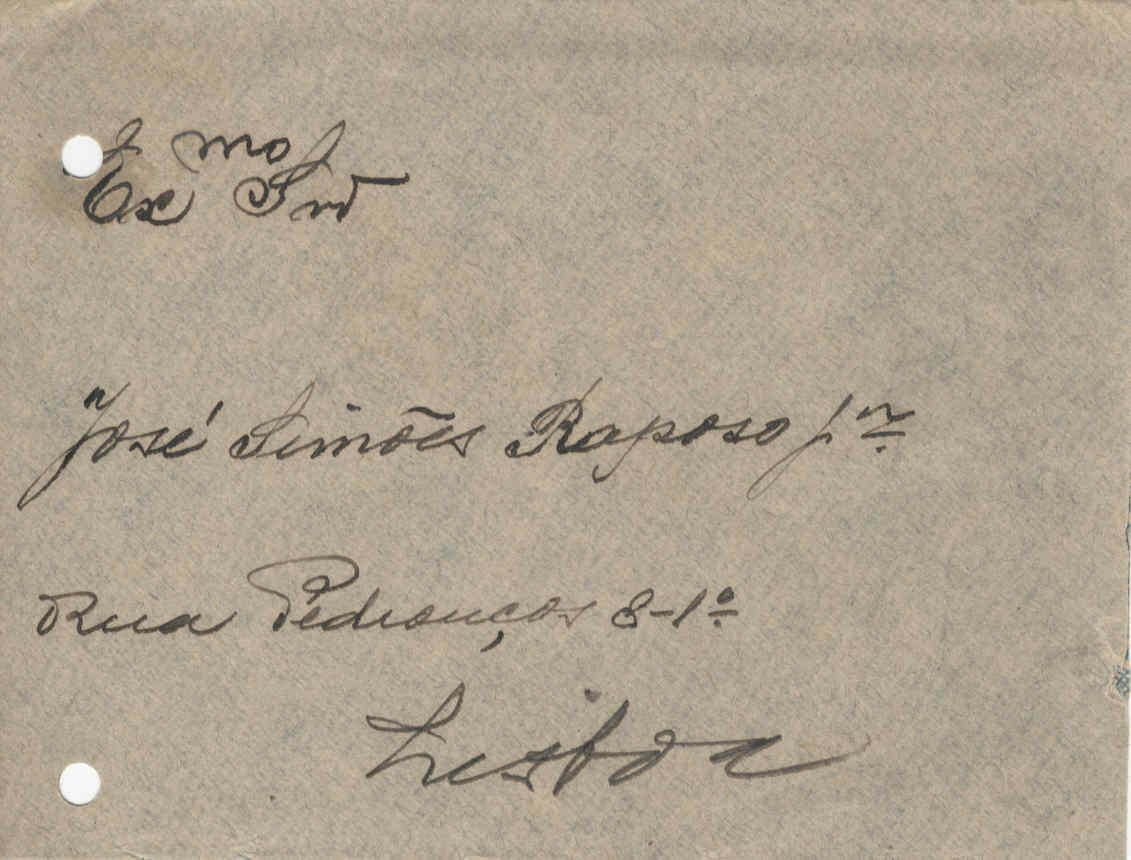 Exmo Snr
José Simões Raposo Jnr
Rua Pedrouços 8-1º
Lisboa